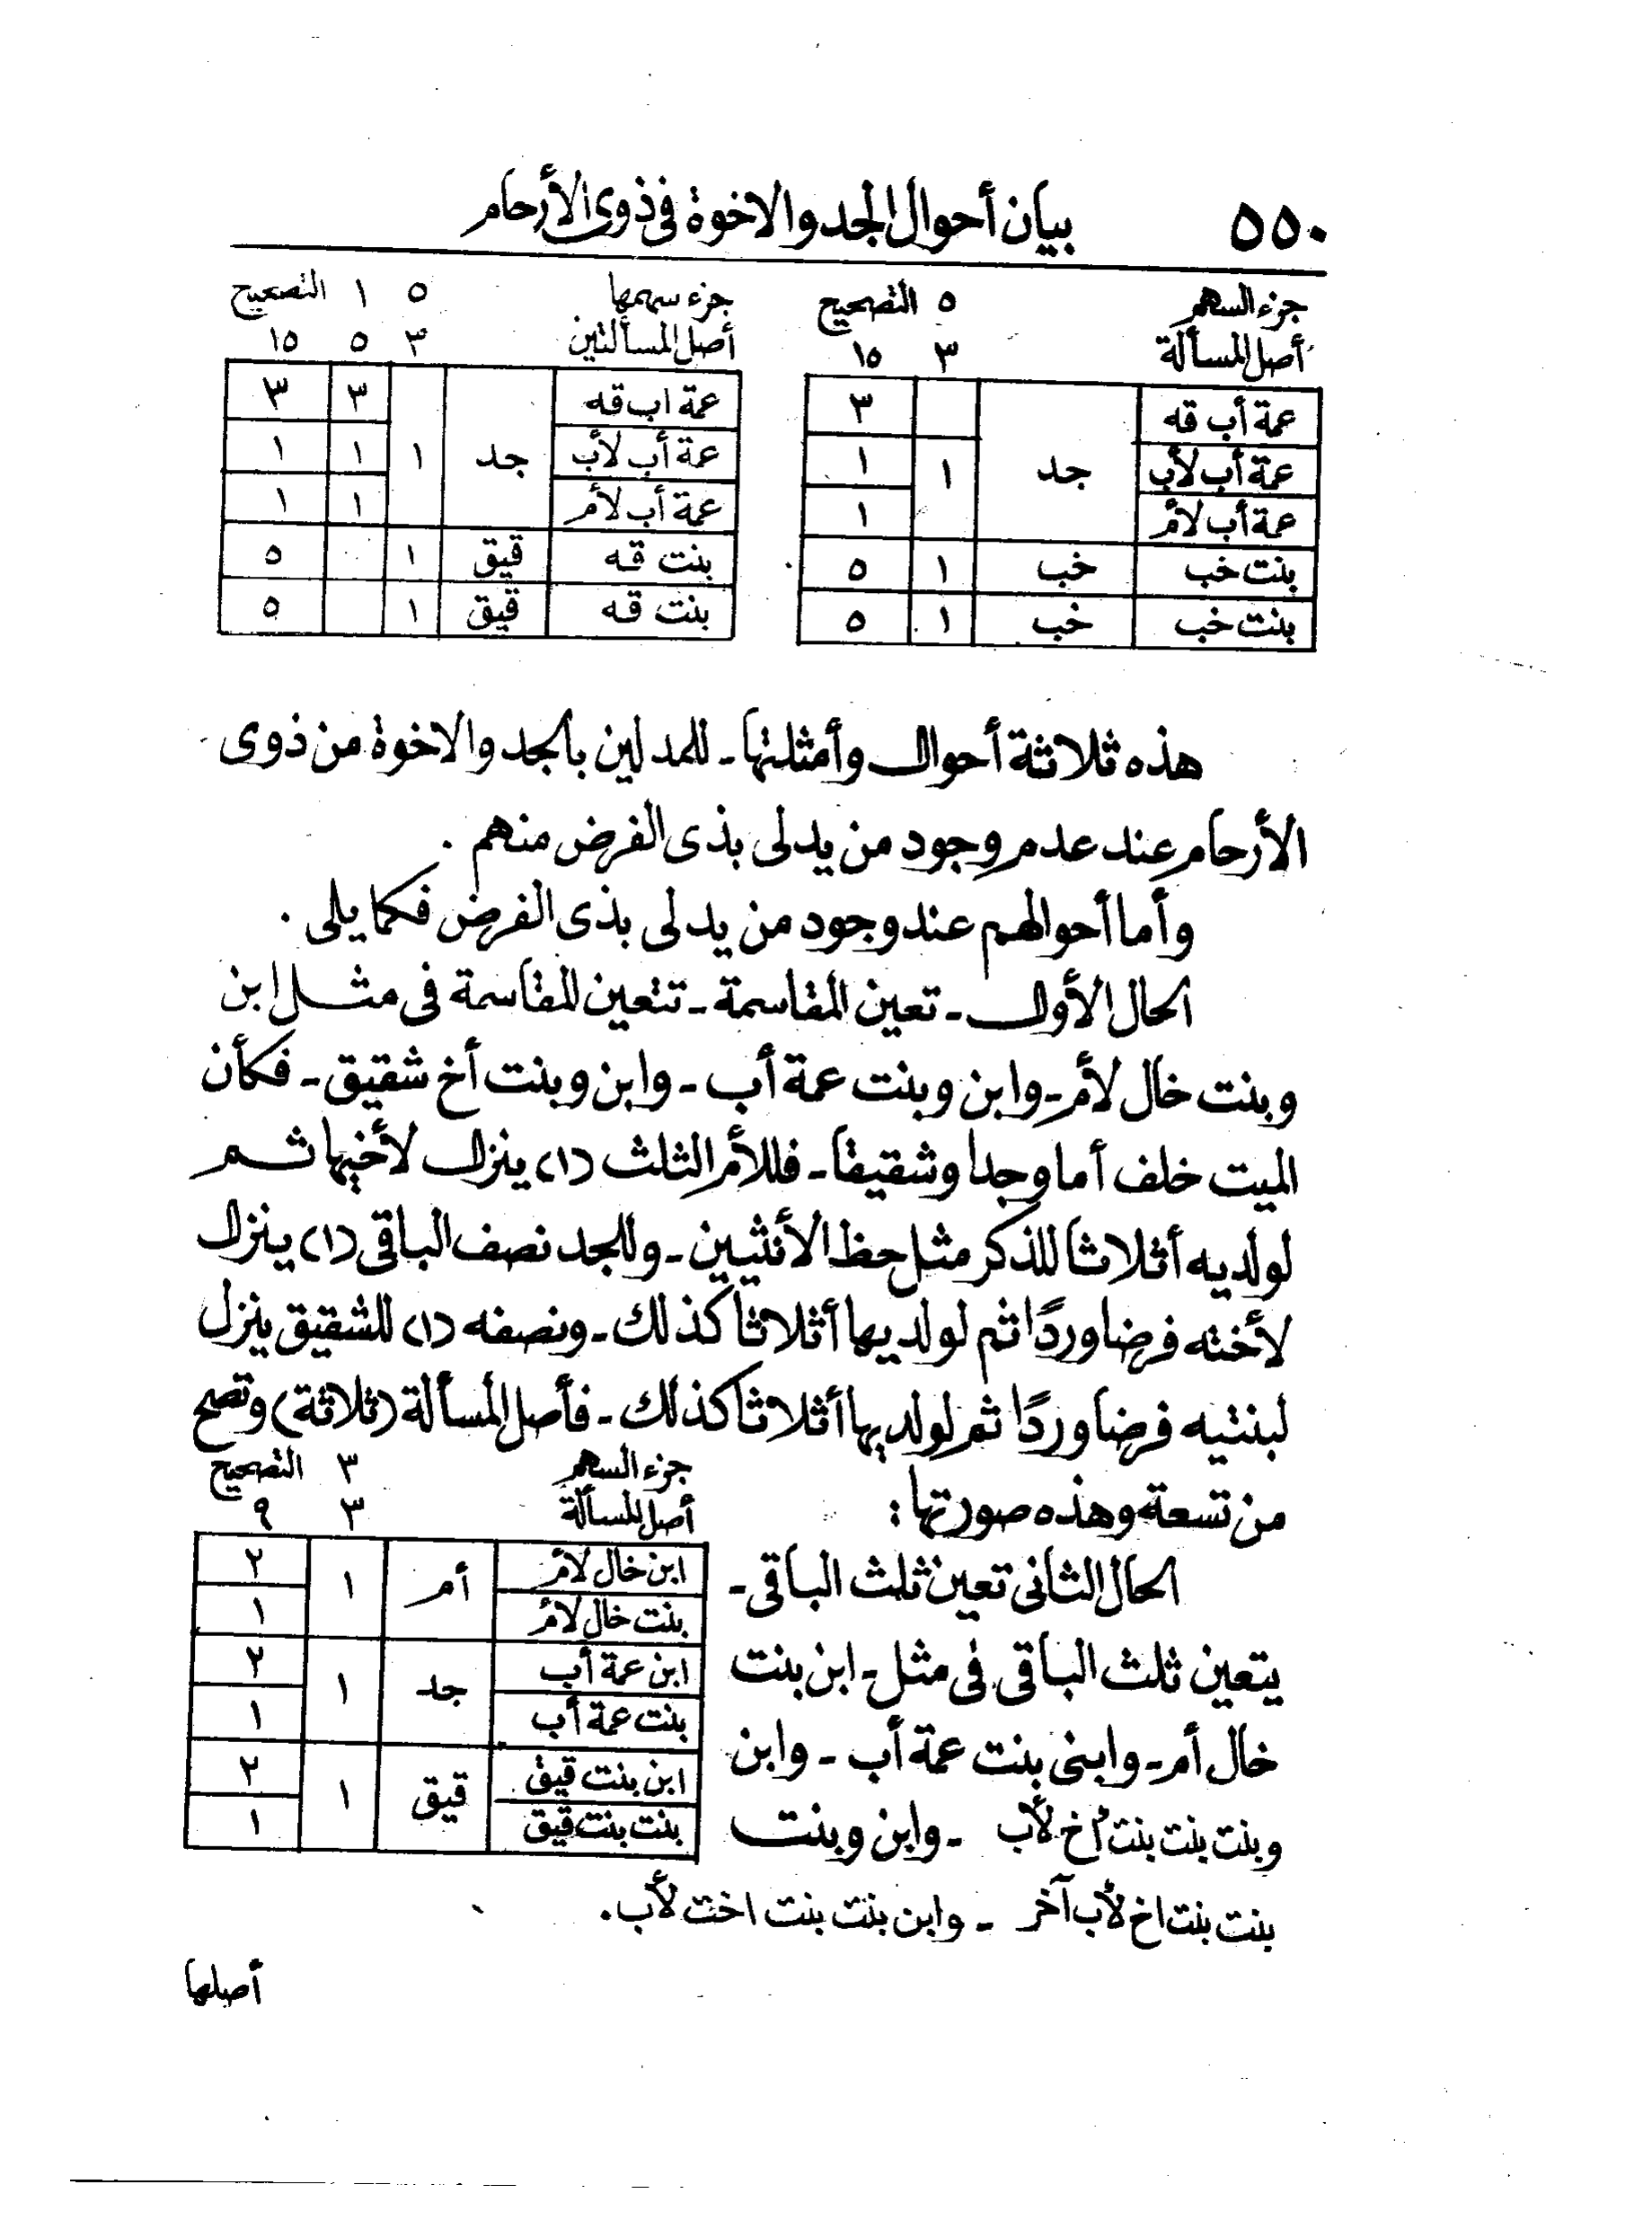 ٥٥٠ بيان أحوال الجد والاخوة فى ذوى الأرحام
جزء السهم ٥ التصحيح
أصل المسألة ٣ ١٥
عمة أب قه جد ٣
عمة أب لأب ١ ١
عمة أب لأم ١
بنت خب خب ١ ٥
بنت خب خب ١ ٥
جزء سهمها ٥ ١ التصحيح
أصل المسألتين ٣ ٥ ١٥
عمة اب قه ٣ ٣
عمة أب لأب جد ١ ١ ١
عمة أب لأم ١ ١
بنت قه قيق ١ ٥
بنت قه قيق ١ ٥
هذه ثلاثة أحوال وأمثلتها ـ للمدلين بالجد والاخوة من ذوى
الأرحام عند عدم وجود من يدلى بذى الفرض منهم .
وأما أحوالهم عند وجود من يدلى بذى الفرض فكما يلى .
الحال الأول ـ تعين المقاسمة ـ تتعين المقاسمة فى مثل ابن
وبنت خال لأم ـ وابن وبنت عمة أب ـ وابن وبنت أخ شقيق ـ فكأن
الميت خلف أما وجدا وشقيقا ـ فللأم الثلث (١) ينزل لأخيها ثم
لولديه أثلاثا للذكر مثل حظ الأنثيين ـ وللجد نصف الباقى (١) ينزل
لأخته فرضا وردًا ثم لولديها أثلاثا كذلك ـ ونصفه (١) للشقيق ينزل
لبنتيه فرضا وردًا ثم لولديها أثلاثا كذلك ـ فأصل المسألة (ثلاثة) وتصح
من تسعة وهذه صورتها :
جزء السهم ٣ التصحيح
أصل المسألة ٣ ٩
ابن خال لأم أم ١ ٢
بنت خال لأم ١
ابن عمة أب جد ١ ٢
بنت عمة أب ١
ابن بنت قيق قيق ١ ٢
بنت بنت قيق ١
الحال الثانى تعين ثلث الباقى ـ
يتعين ثلث الباقى فى مثل ـ ابن بنت
خال أم ـ وابنى بنت عمة أب ـ وابن
وبنت بنت بنت أخ لأب ـ وابن وبنت
بنت بنت اخ لأب آخر ـ وابن بنت بنت اخت لأب .
أصلها